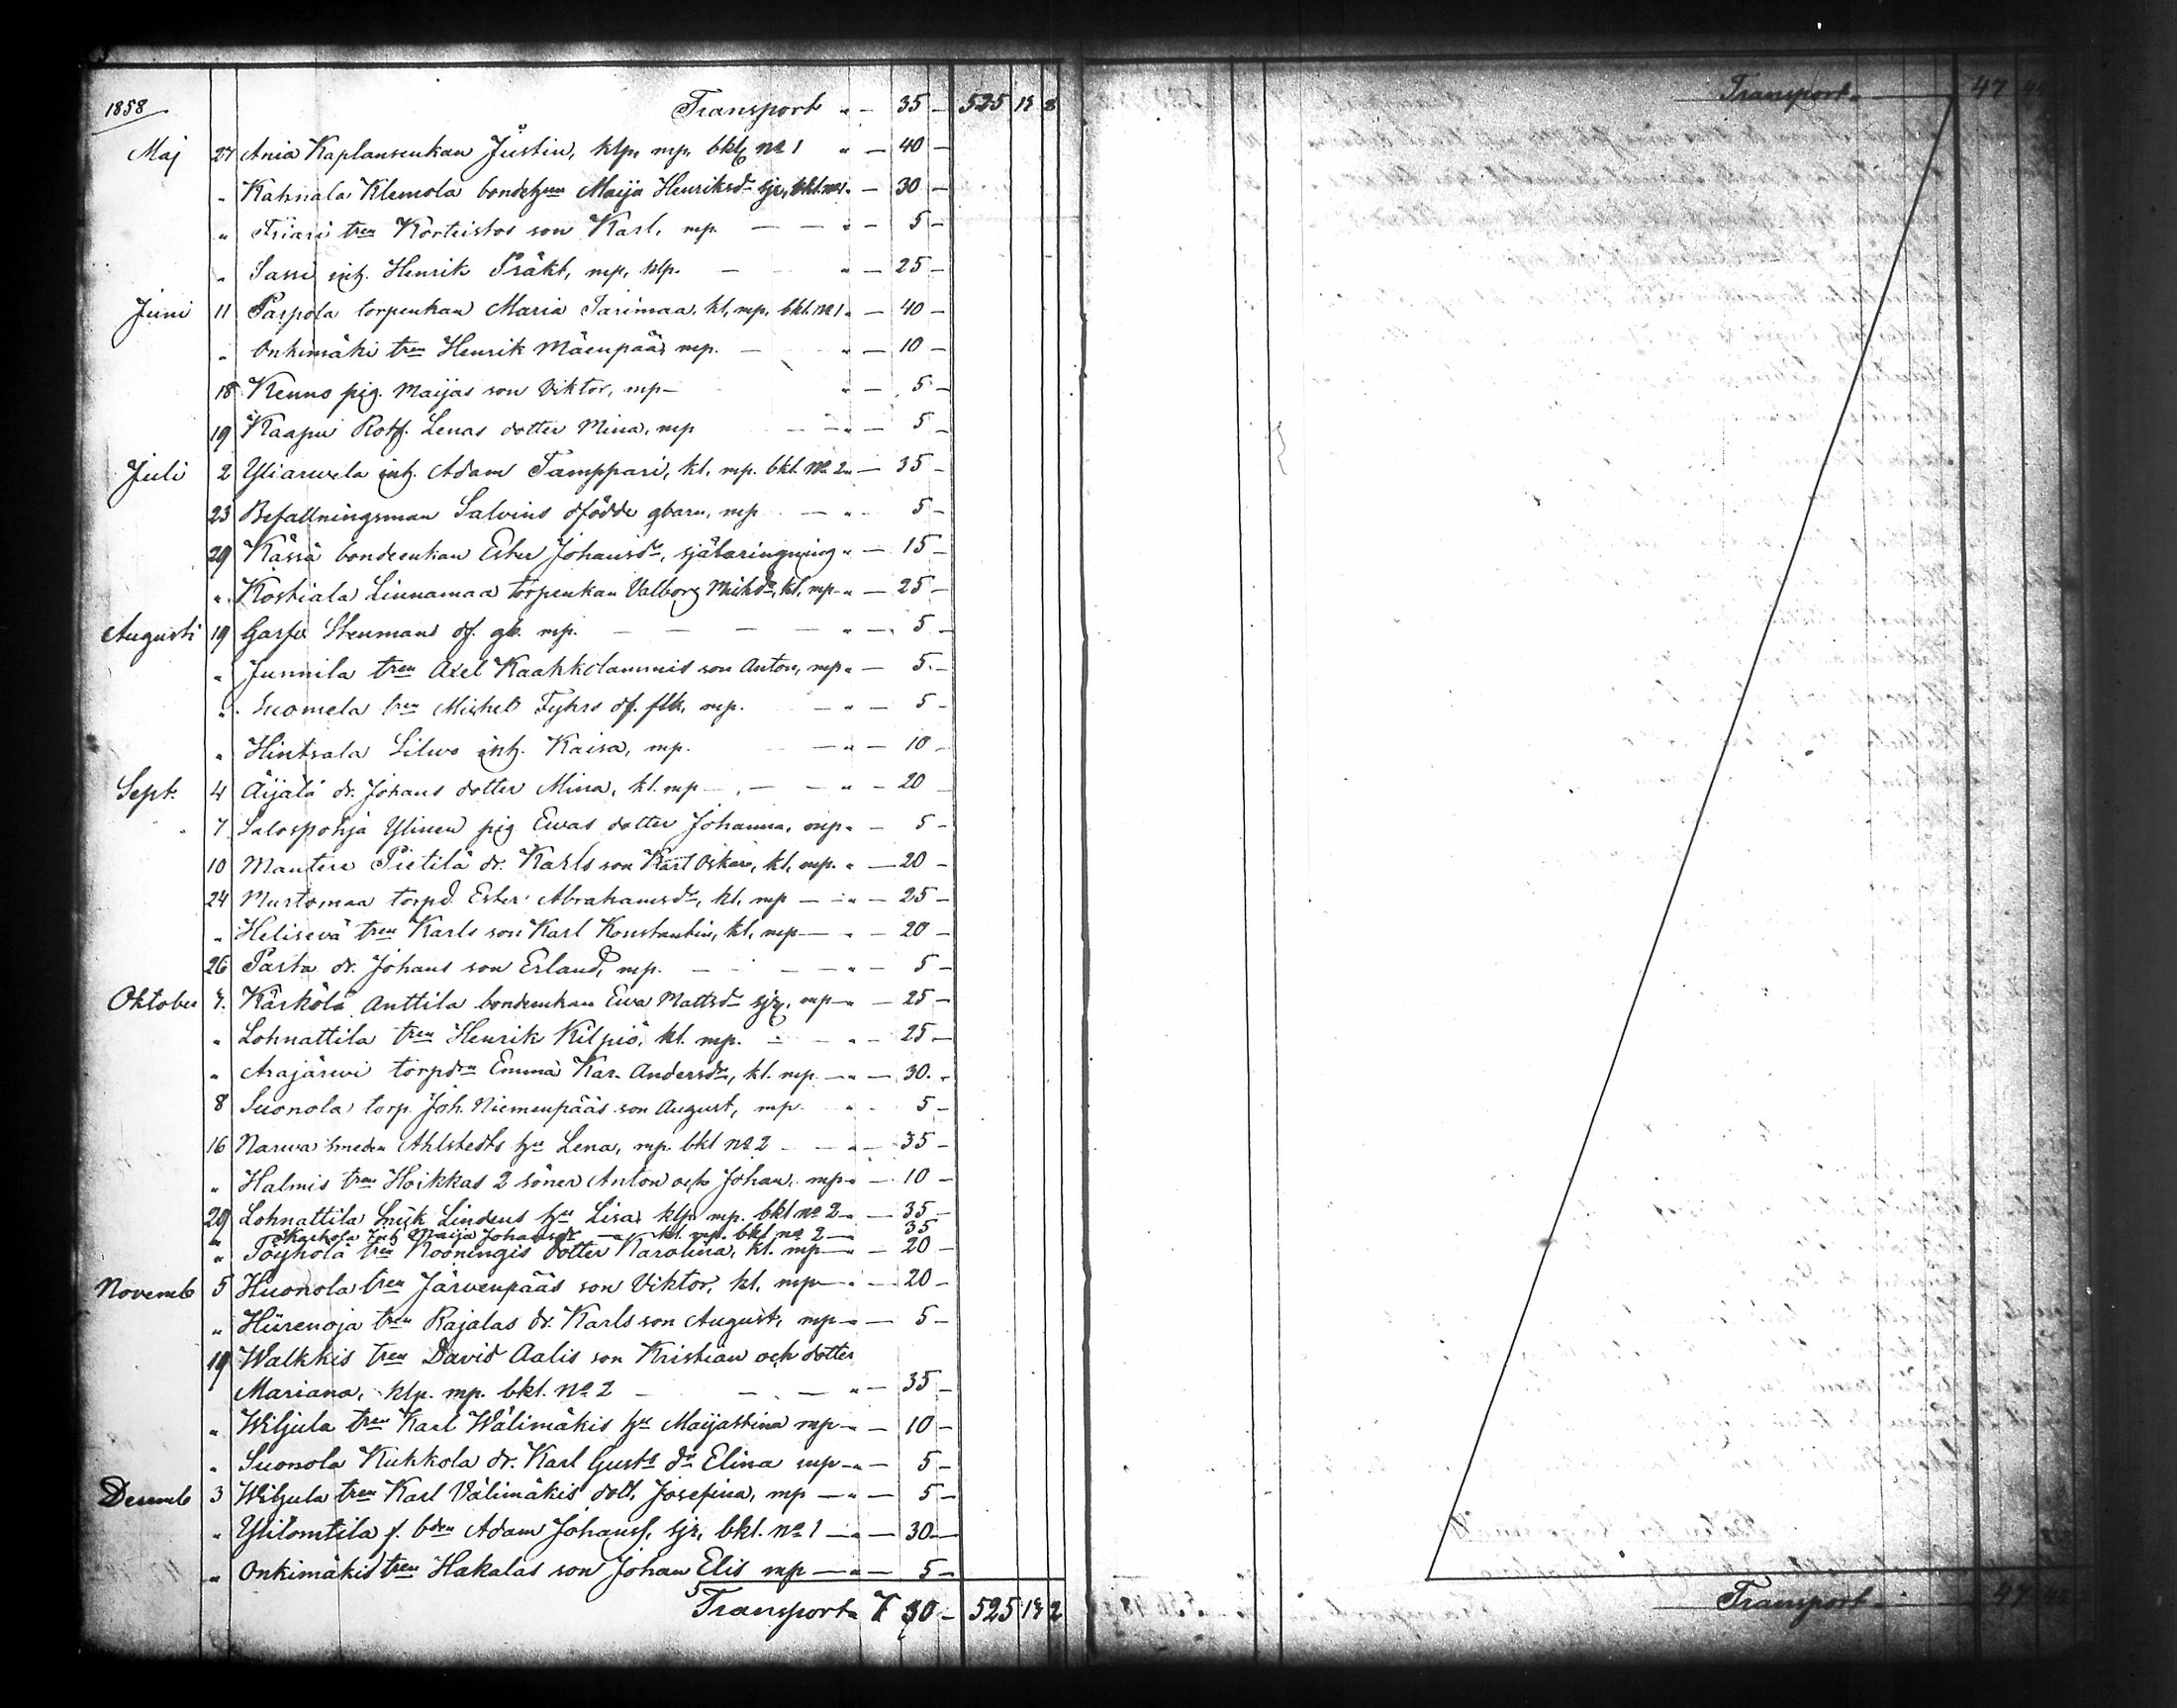 1858 Transport " — 35 — 525 13 2
Maj 27 Ania Kaplansenkan Justin, klp, mp, bkl, No 1 " — 40 —
" Kahnala Klemola bondehun Maija Henriksdr sjr, bkl. no 1 " — 30 —
" Friari tren Körteistos son Karl, mp. — — " — 5 —
" Sassi inh. Henrik Präkt, mp, klp. — " — 25 —
Juni 11 Parpola torpenkan Maria Sarimaa, kl, mp, bkl. No 1 " — 40 —
" Onkimäki tren Henrik Mäenpää, mp. — " — 10 —
18 Keuno pig. Maijas son Viktor, mp — " — 5 —
19 Kaapu Rotf. Lenas dotter Mina, mp — " — 5 —
Juli 2 Yliarvela inh. Adam Tamppari, kl. mp. bkl. No 2 " — 35 —
23 Befallningsman Salvius dfödde gbarn, mp — " 5 —
29 Kässä bondeenkan Ester Johansdr, själaringning " — 15 —
" Kostiala Linnamaa torpenkan Valborg Mihdr, kl, mp " — 25 —
Augusti 19 Garfv Stenmans df. gb. mp. — — — — " — 5 —
" Junnila tren Axel Kaakkolammis son Anton, mp " — 5 —
" Suomela tren Michel Fyhrs df. flb, mp. — " — 5 —
" Hintsala Silwo inh. Kaisa, mp. — " — 10 —
Sept. 4 Äijälä dr. Johans dotter Mina, kl. mp — — — " — 20
7 Salospohja Ylinen pig Ewas dotter Johanna, mp " — 5 —
10 Mantere Pietilä dr. Karls son Karl Oskar, kl, mp. " — 20 —
24 Murtomaa torpd. Ester Abrahamsdr, kl, mp — " — 25 —
" Helisevä tren Karls son Karl Konstantin, kl, mp — " — 20 —
26 Pasta dr. Johans son Erland, mp. — — — " — 5 —
Oktober 7. Kärkölä Anttila bondenkan Ewa Mattsdr sjr, mp — " — 25 —
" Lohnattila tren Henrik Kilpiö, kl. mp. — " — 25 —
" Arajärwi torpdrn Emma Kar. Andersdr, kl. mp — " — 30 —
8 Suonola torp. Joh. Niemenpääs son August, mp " 5 —
16 Narwa smeden Ahlstedts hu Lena, mp. bkl No 2 — " — 35 —
" Halmis tren Hoikkas 2 söner Anton och Johan, mp " — 10 —
29 Lohnattila Snik Lindens hu Lisa, klp. mp. bkl no 2 " — 35 —
" Karhola inh Maija Johansdr — kl. mp. bkl no 2 — 35
" Töyholä tren Rooningis dotter Karolina, kl. mp — " — 20 —
Novemb 5 Huonola tren Järvenpääs son Viktor, kl. mp — " — 20 —
" Hiirenoja tren Rajalas dr. Karls son August, mp — " — 5 —
19 Walkkis tren David Aalis son Kristian och dotter
Mariana, klp. mp. bkl. No 2 — — — " — 35 —
" Wiljula tren Karl Wälimäkis hu Maijastina mp — " — 10 —
" Suonola Kukkola dr. Karl Gusts dr Elina mp — " — 5 —
Decemb 3 Wiljula tren Karl Välimäkis dott. Josefina, mp — " — 5 —
" Ylilomtila f. bden Adam Johanss. sjr, bkl. No 1 — " — 30 —
" Onkimäkis tren Hakalas son Johan Elis mp — " — 5 —
Transport " 7 50 — 525 13 2
Transport " 47
Transport " 47